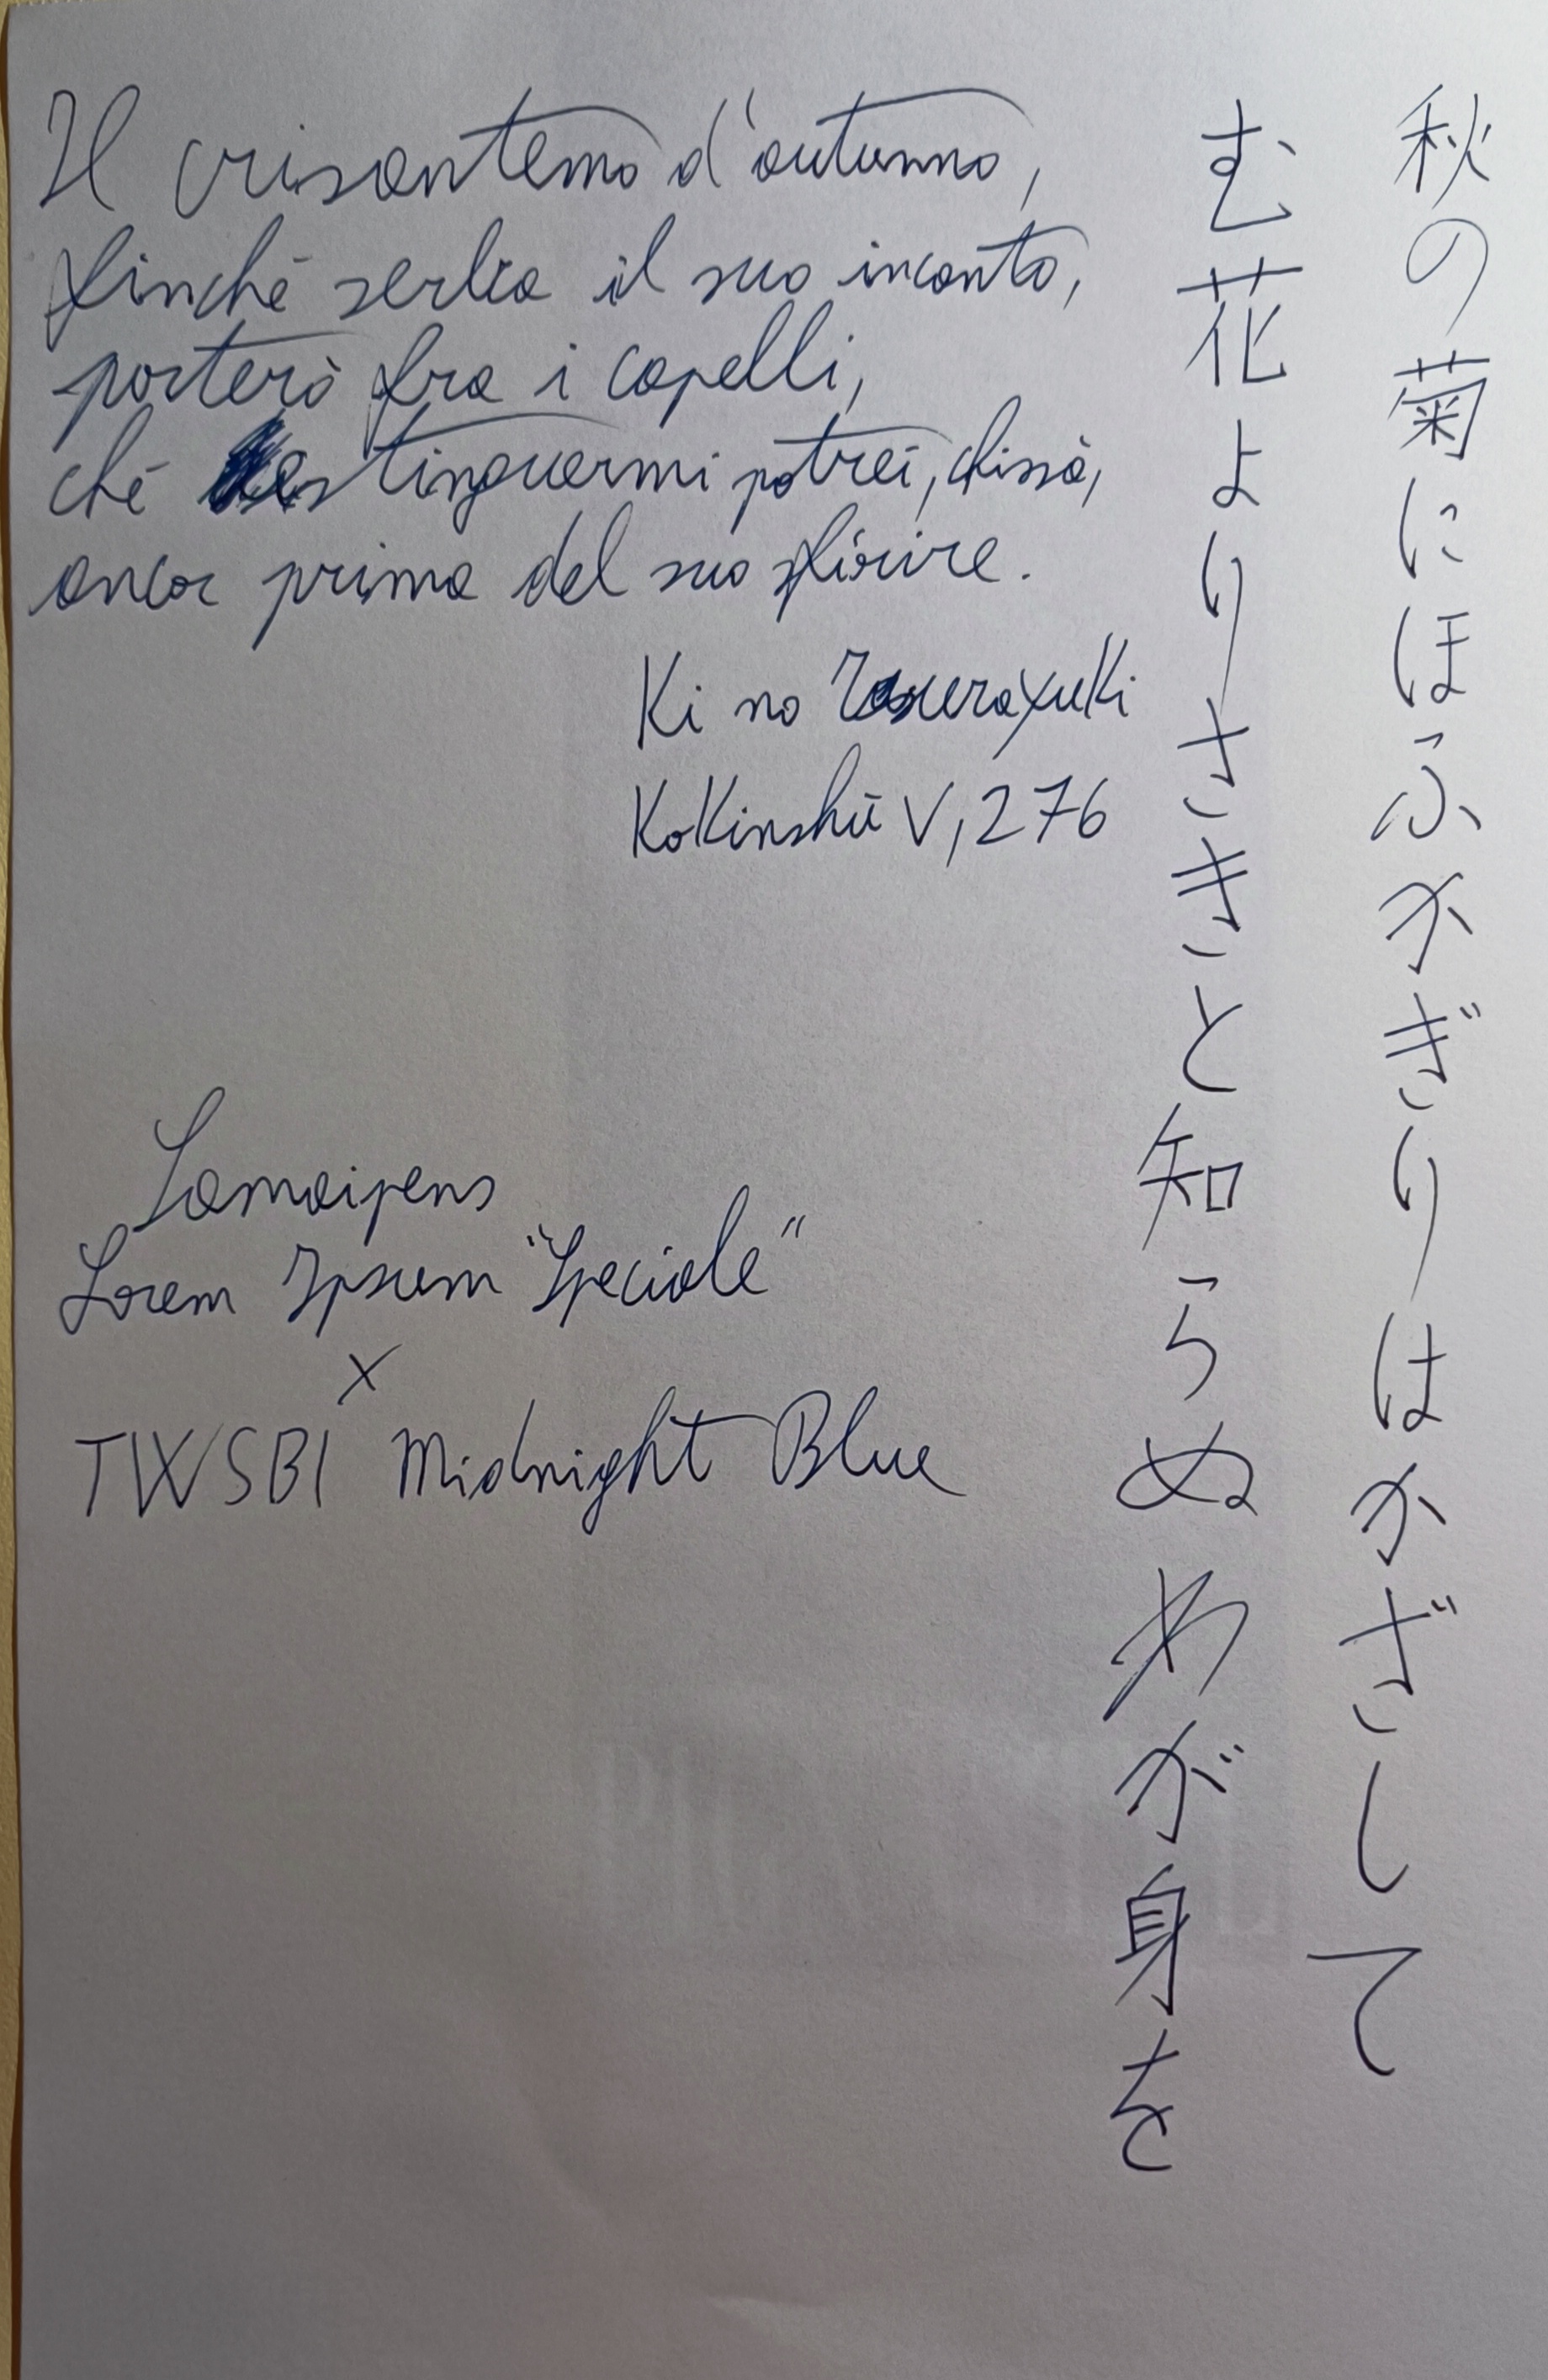 Il crisantemo d'autunno,
finché serba il suo incanto,
porterò fra i capelli,
ché estinguermi potrei, chissà,
ancor prima del suo sfiorire.
Ki no Tsurayuki
Kokinshū V, 276
秋の菊にほふかぎりはかざして
む花よりさきと知らぬわが身を
Lamaipens
Lorem Ipsum "Speciale"
x
TWSBI Midnight Blue